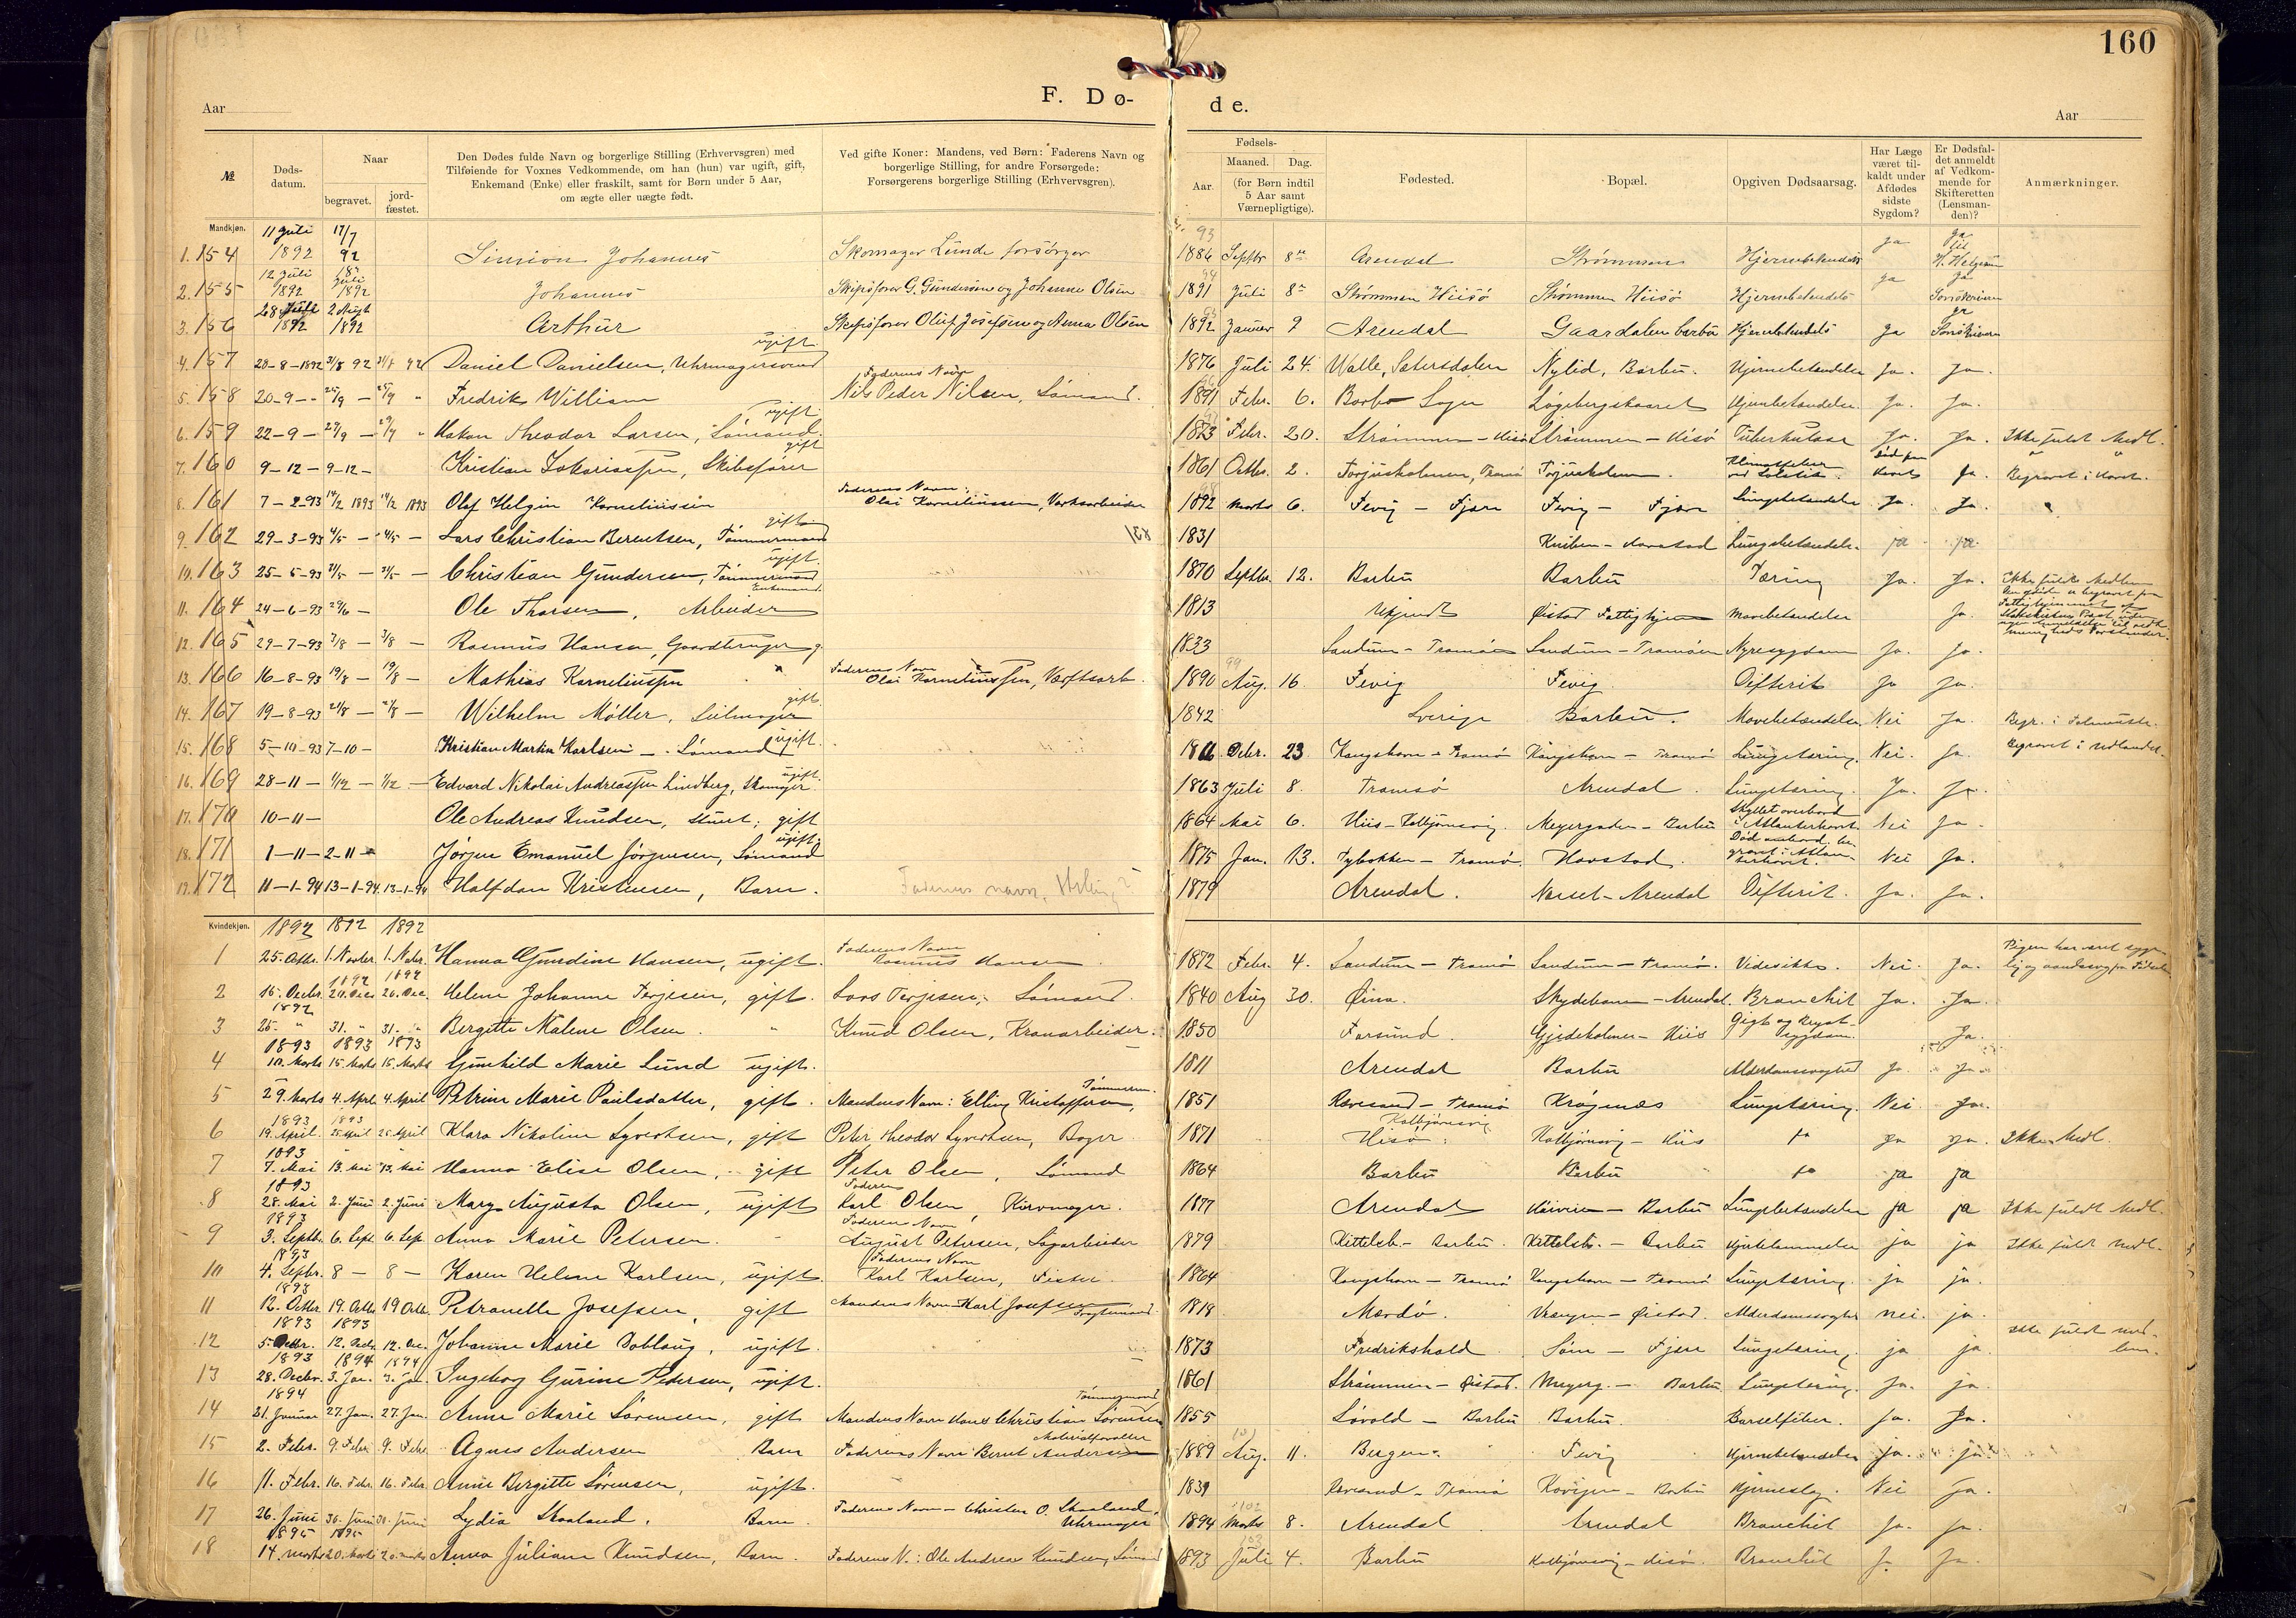 160
Aar
F. Dø-
de.
Aar
№
Døds-
datum.
Naar
begravet.
jord-
fæstet.
Den Dødes fulde Navn og borgerlige Stilling (Erhvervsgren) med
Tilføiende for Voxnes Vedkommende, om han (hun) var ugift, gift,
Enkemand (Enke) eller fraskilt, samt for Børn under 5 Aar,
om ægte eller uægte født.
Ved gifte Koner: Mandens, ved Børn: Faderens Navn og
borgerlige Stilling, for andre Forsørgede:
Forsørgerens borgerlige Stilling (Erhvervsgren).
Fødsels-
Aar.
Maaned.
Dag.
(for Børn indtil
5 Aar samt
Værnepligtige).
Fødested.
Bopæl.
Opgiven Dødsaarsag.
Har Læge
været til-
kaldt under
Afdødes
sidste
Sygdom?
Er Dødsfal-
det anmeldt
af Vedkom-
mende for
Skifteretten
(Lensman-
den)?
Anmærkninger.
Mandkjøn.
1. 154 11 Juli 1892 17/7 92 Simion Johannes Skomager Lunde forsørger 1886 Septbr 8 Arendal Strømmen Hjernebetendels ja ja
2. 155 12 Juli 1892 18 Juli 1892 Johannes Skipsfører G. Gundersen og Johanne Olsen 1891 Juli 8 Strømmen Hiisö Strømmen Hiisö Hjernebetendels ja ja Sorenskriveren
3. 156 28 Juli 1892 2 Augst 1892 Arthur Skipsfører Oluf Josefsen og Anna Olsen 1892 Januer 9 Arendal Gaardalen barbu Hjernebetendels ja ja Sorenskriveren
4. 157 28-8-1892 31/8 92 31/8 92 Daniel Danielsen, Uhrmagersvend ugift. 1876 Juli 24. Walle, Satersdalen Nylid, Barbu. Hjernebetændelse Ja. Ja.
5. 158 20-9 - 25/9 - 25/9 " Fredrik William Faderens Navn Nils Peder Nilsen, Sømand. 1891 Febr. 6. Barbo Sogn Løgebergskaaret Hjernbetændelse. Ja. Ja.
6. 159 22-9 - 27/9 - Hakon Theodor Larsen, Sømand. ugift. 1873 Febr. 20. Strømmen - Hisö Strømmen - Hisö Tuberkulose Ja. Ja. Ikke fuldt Medl.
7. 160 9-12 - 9-12 - Kristian Zakariassen, Skibsfører gift 1861 Octbr. 2. Torjusholmen, Tromö Torjusholmen. Klimatfeber Ja Begravet i Havet.
8. 161 7-2-93 14/2 1893 14/2 1893 Olaf Helgin Korneliussen Faderens Navn: Olai Korneliussen, Værksarbeider 1892 Marts 6. Fevig - Fjære Fevig - Fjære Lungebetændelse Ja. Ja.
9. 162 29-3-93 4/5 - 4/5 - Lars Christian Berentsen, Tømmermand gift 1831 Kniben - Havstad Lungebetændelse. ja ja
10. 163 25-5-93 31/5 - 31/5 - Christian Gundersen, Tømmermand ugift. 1870 Septbr. 12. Barbu Barbu Tæring Ja. Ja. Ikke fuldt Medlem
11. 164 24-6-93 29/6 - Ole Thorsen, Arbeider Enkemand. 1813 Ukjendt Øistad Fattighjem Mavebetændelse Ja
12. 165 29-7-93 3/8 - 3/8 - Rasmus Hansen, Gaardbruger g. 1833 Sandum - Tromöen Sandum - Tromöen Nyresygdom Ja. Ja.
13. 166 16-8-93 19/8 - 19/8 - Mathias Korneliussen Faderens Navn Olai Korneliussen, Værftsarb. 1890 Aug. 16. Fevig Fevig. Difterit Ja Ja.
14. 167 19-8-93 21/8 - 21/8 - Wilhelm Møller, Seilmager gift. 1842 Sverige Barbu. Mavebetændelse Nei Ja.
15. 168 5-10-93 7-10- Kristian Martin Karlsen - Sømand ugift. Octbr. 23. Kongshavn - Tromö Kongshavn - Tromö Lungetæring. Nei. Ja. Begravet i Udlandet.
16. 169 28-11 - 1/12 - 1/12 - Edvard Nikolai Andreassen Lindberg, Skomager ugift. 1863 Juli 8. Tromsö Arendal. Lungetæring. Ja. Ja.
17. 170 10-11- Ole Andreas Knudsen, Stuert; gift 1864 Mai 6. Hiis - Kolbjörnsvig. Meyergaden - Barbu Skyllet overbord i Atlanterhavet. Nei Ja.
18. 171 1-11 - 2-11 Jørgen Emanuel Jørgensen, Sømand ugift. 1875 Jan. 13. Tybakken - Tromö. Havstad. Død ombord. be- gravet i Atlan- terhavet. Nei Ja.
19. 172 11-1-94 13-1-94 13-1-94 Halfdan Kristensen, Barn. Faderens navn, 1879 Arendal. Neset - Arendal Difterit. Ja. Ja.
Kvindekjøn. 1892 1892 1892
1 25. Octbr. 1. Novbr. 1. Nobr. Hanna Gundine Hansen, ugift. Faderens Navn Rasmus Hansen. 1872 Febr. 4. Sandum - Tromö Sandum - Tromö. Videsikke. Nei. Ja.
2 16. Decbr. 1892 20. Dec 20. Dec. Helene Johanne Terjesen, gift. Lars Terjesen, Sømand. 1840 Aug 30. Øina. Skydebanen - Arendal. Bronchit Ja. Ja.
3 25. " 31. " 31. " Bergitte Malene Olsen. " Knud Olsen, Kranarbeider. 1850 Farsund. Gjedeholmen - Hiis Gigt og Bryst- sygdom. Ja.
1893 1893 1893
4 10. Marts 15. Marts 15. Marts Gunhild Marie Lund ugift. 1811 Arendal Barbu Alderdomssvaghed Ja. Ja.
5 29. Marts 4. April 4. April Petrine Marie Paulsdatter, gift. Mandens Navn: Elling Kristoffersen, Tömmerm. 1851 Revesand - Tromö Krøgenæs Lungetæring. Nei. Ja.
1893 1893
6 19. April. 25 April 25. April Klara Nikoline Syvertsen, gift Peter Theodor Syvertsen, Bager. 1871 Hisø. Kolbjörnsvig Kolbjörnsvig - Hiis ja ja. Ikke Medl.
1893
7 7. Mai 13. Mai 13. Mai Hanna Elise Olsen, gift Peter Olsen, Sømand 1864 Barbu Barbu ja ja
1893
8 28. Mai 2. Juni 2. Juni Mary Augusta Olsen, ugift Faderen Karl Olsen, Kurvmager. 1877 Arendal Kaiveien - Barbu Lungebetændelse ja ja Ikke fuldt Medl.
1893
9 3. Septbr. 6. Sept. 6. Sep. Anna Marie Petersen. Faderens Navn August Petersen, Sagarbeider 1879 Kittelsb. - Barbu. Kittelsb. - Barbu Hjertelammelse ja ja Ikke fuldt Medl.
1893
10 4. Septbr. 8 - 8 - Karen Helene Karlsen, ugift. Faderens Navn Karl Karlsen, Fisker. 1864 Kongshavn - Tromö Kongshavn - Tromö Lungetæring. ja ja.
1893
11 12. Octbr 19. Octb. 19 Octb. Petronelle Josefsen, gift Mandens Navn Karl Josefsen 1818 Merdö. Vrengen - Øistad. Alderdomssvaghed nei. ja.
1893 1893
12 5. Decbr. 12. Decbr. 12. Dec. Johanne Marie Doblaug, ugift. 1873 Fredrikshald Søm - Fjære Lungetæring. ja ja. Ikke fuldt med- lem.
1893 1894 1894
13 28. Decbr. 3. Jan. 3. Jan. Ingeborg Gurine Pedersen, ugift. 1861 Strömmen - Øistad. Meyerg. - Barbu. Lungetæring. Ja. ja.
1894
14 21. Januar 27. Jan. 27. Jan. Anne Marie Sørensen, gift Mandens Navn Hans Christian Sørensen Tömmermand 1855 Løvold - Barbu Barbu. Barselfeber. Ja. Ja.
15 2. Febr. 9. Febr 9. Febr. Agnes Andersen Barn Faderens Navn Bernt Andersen Materialforvalter 1889 Aug. 11. Bergen. Fevig Hjernebetændelse Ja. ja.
16 11. Febr. 16. Febr. 16. Febr. Anne Bergitte Sørensen, ugift. 1839 Revesand - Tromö Barbu Hjerneslag. Nei Ja.
17 26. Juni 30. Juni 30. Juni Lydia Skaaland. Barn. Faderens Navn - Christen O. Skaaland Uhrmager 1894 Marts 8. Arendal Arendal Bronchit Ja. Ja.
1895 1895
18 14. Marts 20. Marts 20. Marts Anna Juliane Knudsen, Barn. Faderens N.: Ole Andreas Knudsen, Sømand 1893 Juli 4. Barbu Kolbjörnsvig - Hisö. Bronchit Ja Ja.